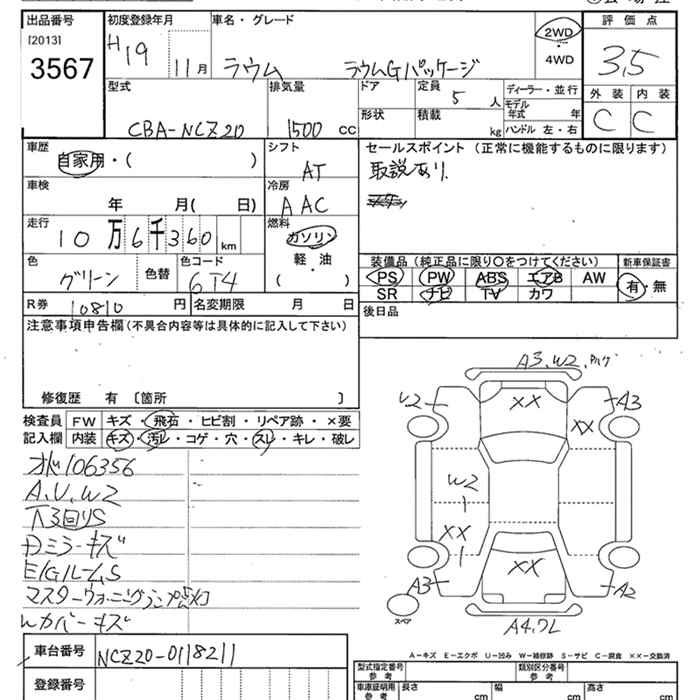 出品番号
[2013]
3567
初度登録年月
H19
11月
車名・グレード
ラウム ラウムGパッケージ
2WD
・
4WD
評価点
3.5
外装 内装
C C
型式
CBA-NCZ20
排気量
1500 cc
ドア
定員
5 人
形状
積載
kg
ディーラー・並行
モデル
年式 年
ハンドル 左・右
車歴
自家用・( )
シフト
AT
セールスポイント (正常に機能するものに限ります)
取説あり
車検
年 月( 日)
冷房
AAC
走行
10万6千360 km
燃料
ガソリン
軽・油
( )
色
グリーン
色替
色コード
6T4
装備品 (純正品に限り○をつけてください)
PS PW ABS エアB AW
SR ナビ TV カワ
新車保証書
有・無
R券 10810 円
名変期限 月 日
後日品
注意事項申告欄 (不具合内容等は具体的に記入して下さい)
修復歴 有 〔箇所 〕
検査員
記入欄
FW キズ・飛石・ヒビ割・リペア跡・×要
内装 キズ・汚レ・コゲ・穴・スレ・キレ・破レ
A.U.W2
下廻りS
Dミラーキズ
E/GルームS
マスターウォーニングランプ点灯
カバーキズ
A3.W2
XX
A3
XX
W2
XX
XX
A3
A2
スペア
A4
車台番号
NCZ20-0118211
登録番号
A-キズ E-エクボ U-凹み W-補修跡 S-サビ C-腐食 XX-交換済
型式指定番号
参考
類別区分番号
参考
車庫証明用
参考
長さ cm 幅 cm 高さ cm